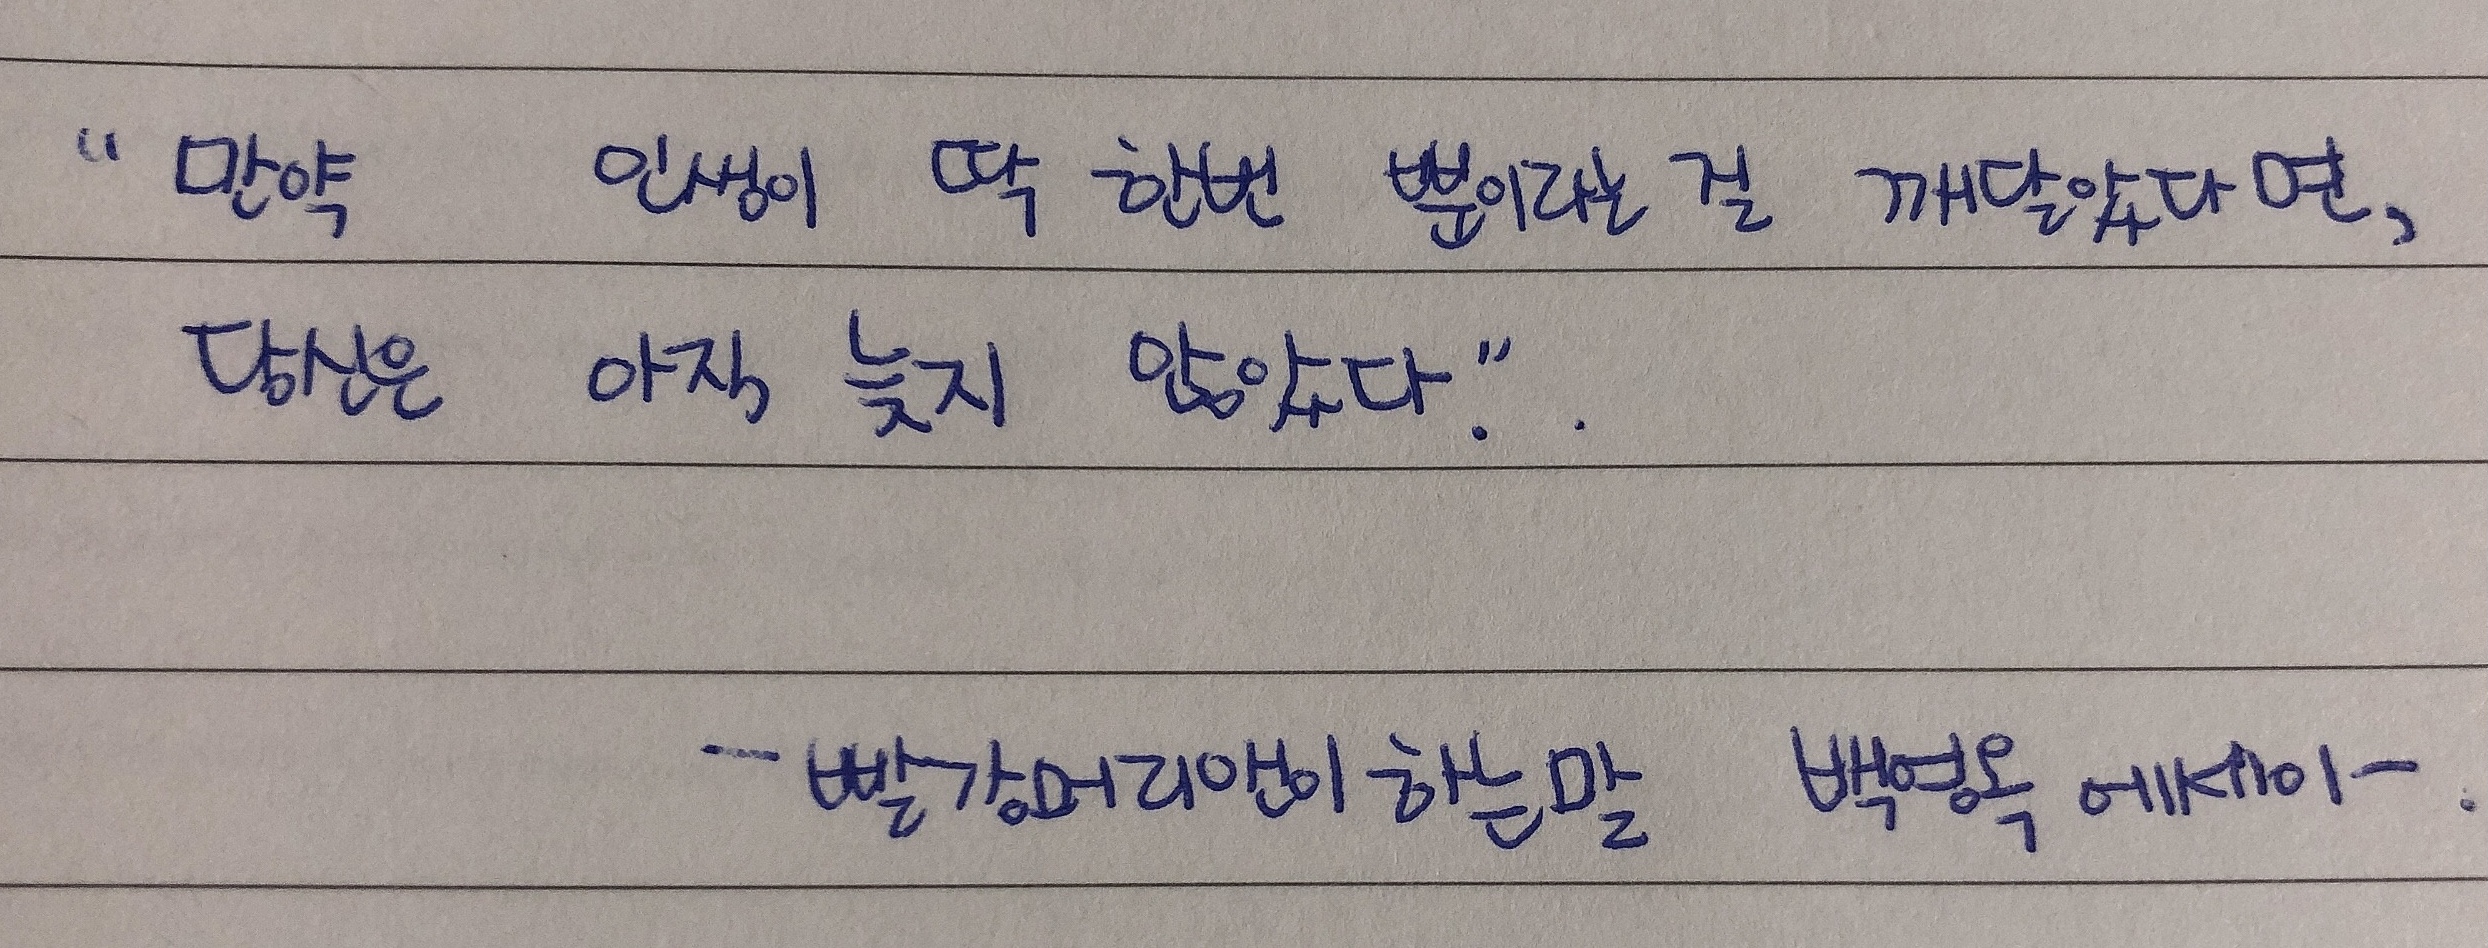 “만약 인생이 딱 한번 뿐이라는 걸 깨달았다면,
당신은 아직 늦지 않았다.”.
- 빨강머리앤이 하는말 백영옥 에세이-.